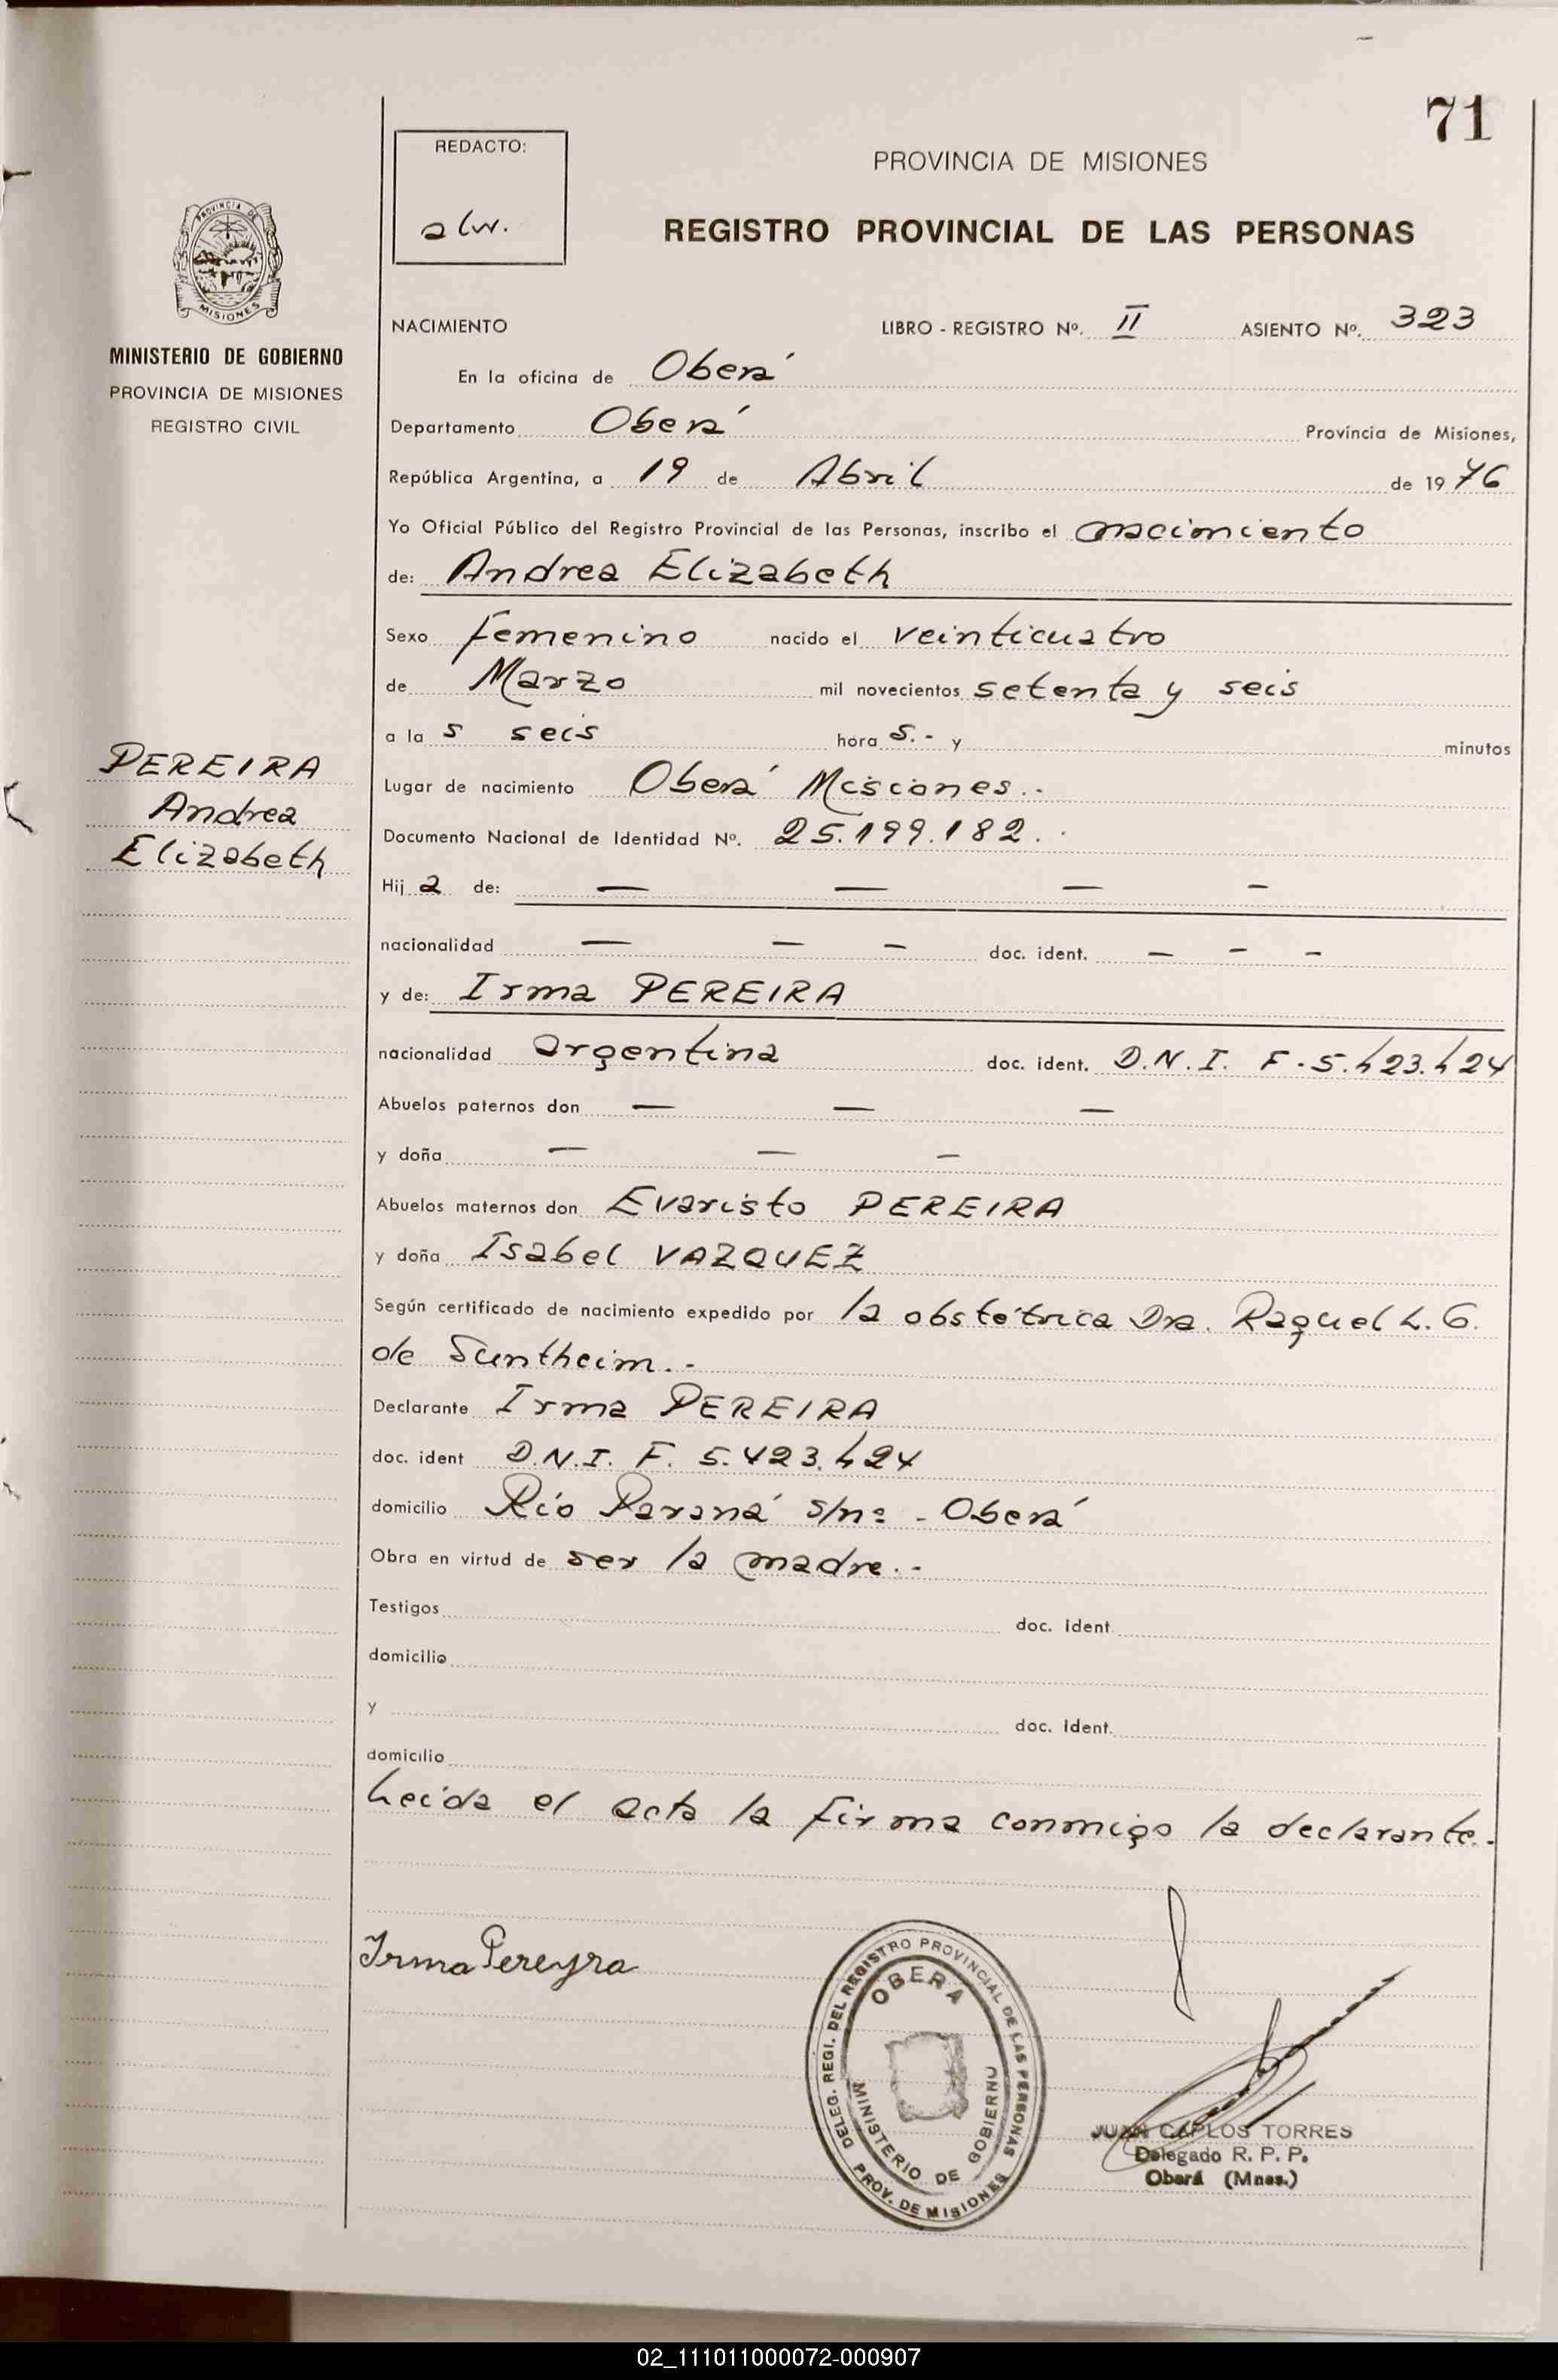 71
REDACTO:
alv.
PROVINCIA DE MISIONES
REGISTRO PROVINCIAL DE LAS PERSONAS
PROVINCIA DE
MISIONES
MINISTERIO DE GOBIERNO
PROVINCIA DE MISIONES
REGISTRO CIVIL
NACIMIENTO LIBRO - REGISTRO Nº. II ASIENTO Nº. 323
En la oficina de Oberá
Departamento Oberá Provincia de Misiones,
República Argentina, a 19 de Abril de 1976
Yo Oficial Público del Registro Provincial de las Personas, inscribo el nacimiento
de: Andrea Elizabeth
Sexo femenino nacido el veinticuatro
de Marzo mil novecientos setenta y seis
a la s seis hora s.- y minutos
PEREIRA
Andrea
Elizabeth
Lugar de nacimiento Oberá Misiones.-
Documento Nacional de Identidad Nº. 25.199.182.-
Hij a de: — — — —
nacionalidad — — — doc. ident. — — —
y de: Irma PEREIRA
nacionalidad argentina doc. ident. D.N.I. F. 5.423.424
Abuelos paternos don — — —
y doña — — —
Abuelos maternos don Evaristo PEREIRA
y doña Isabel VAZQUEZ
Según certificado de nacimiento expedido por la obstétrica Dra. Raquel L. G.
de Suntheim.-
Declarante Irma PEREIRA
doc. ident D.N.I. F. 5.423.424
domicilio Río Paraná s/nº - Oberá
Obra en virtud de ser la madre.-
Testigos doc. ident.
domicilio
y doc. ident.
domicilio
Leída el acta la firma conmigo la declarante.-
Irma Pereyra
DELEG. REGI. DEL REGISTRO PROVINCIAL DE LAS PERSONAS
OBERA
MINISTERIO DE GOBIERNO
PROV. DE MISIONES
JUAN CARLOS TORRES
Delegado R. P. P.
Oberá (Mnes.)
02_111011000072-000907